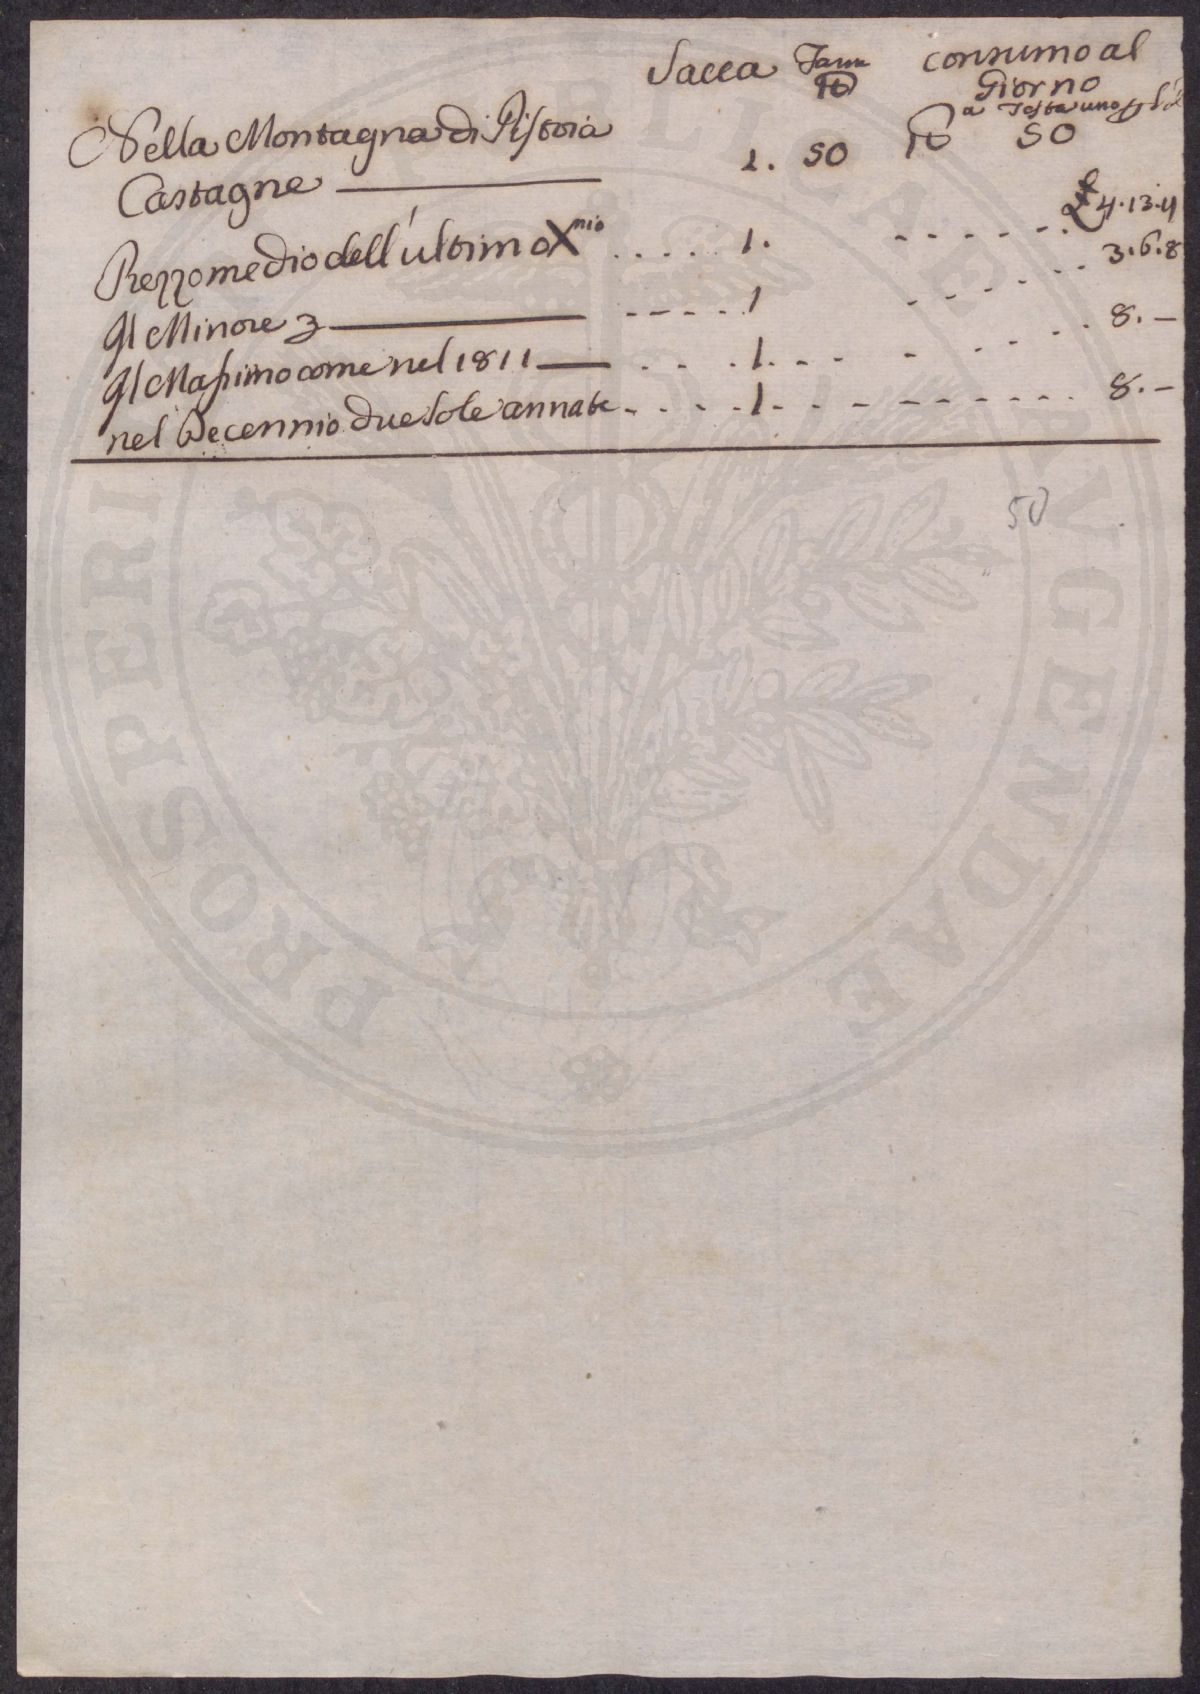 Sacca consumo al
Giorno
a Testa uno
Nella Montagna di Pistoia
Castagne 1. 50 50
£ 4.13.4
Prezzo medio dell'ultimo Xnio ..... 1. ------
Il Minore 3 ----- 1 ------ 3.6.8
Il Massimo come nel 1811 .... 1. ------ 8.–
nel Decennio due sole annate .... 1. ------ 8.–
50
PROSPERITATI PUBLICAE AVGENDAE